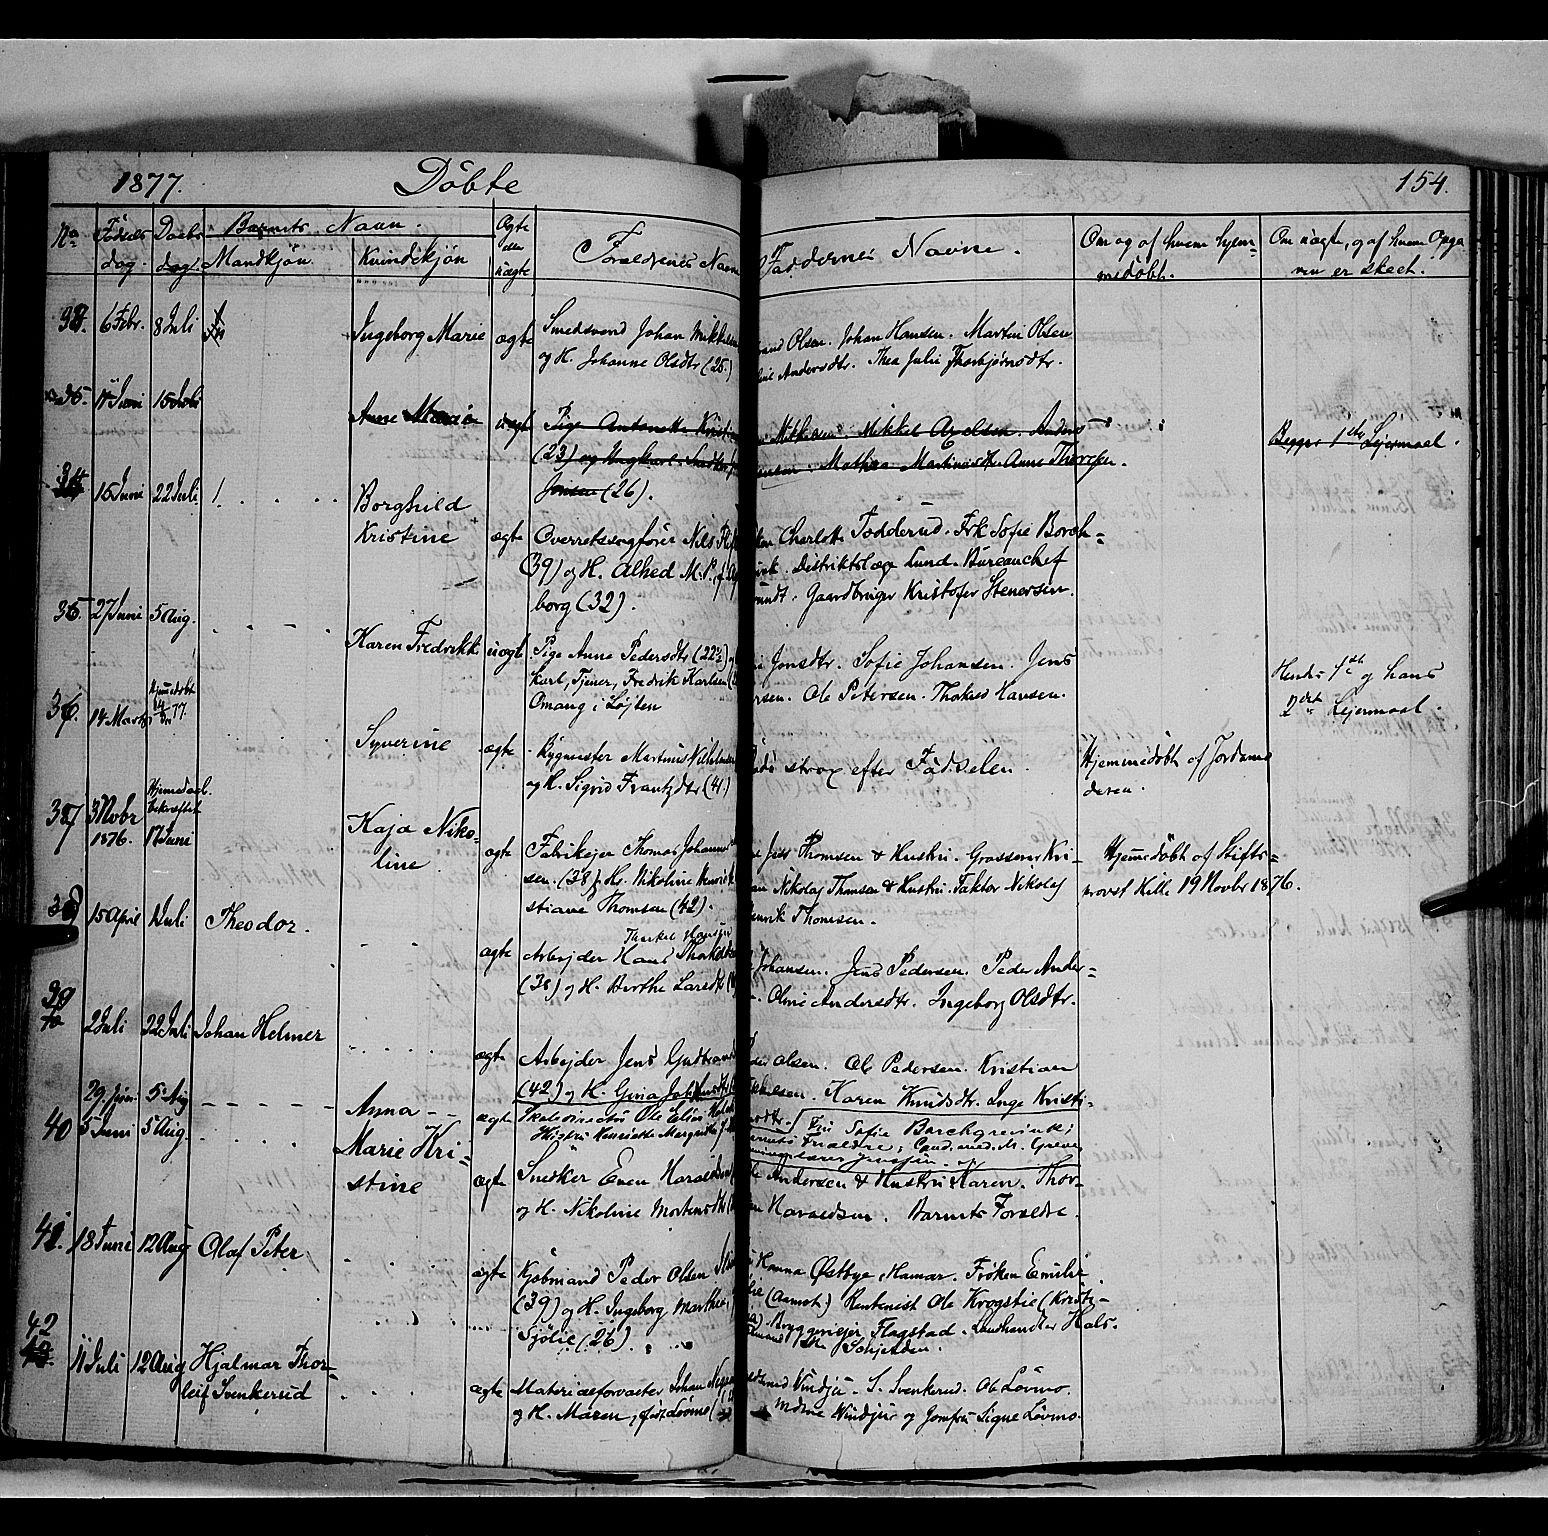 1877. Döbte 154.
No Födsels dag. Daabs dag. Barnets Navn. Mandkjön Kvindekjön Ægte eller uægte Forældrenes Navne Faddernes Navne. Om og af hvem hjem= medöbt. Om uægte, og af hvem Opga ven er skeet.
6 Febr. 8 Juli Ingeborg Marie ægte Smedsvend Johan Mikkelsen
og H. Johanne Olsdtr (25.)
Olsen. Johan Hansen. Martin Olsen
Andersdtr. Thea Julie Thorbjörnsdtr.
35. Juni 15 Juli Anne Marie uægt Pige Antonette
(23) og Ungkarl
Jensen (26).
Mathisen. Mikkel Axelsen. Anders
Mathea Martinsdtr. Anne Thoresen.
Begges 1ste Lejermaal.
34 15 Juni 22 Juli 1. Borghild
Kristine ægte Overretssagförer Nils
(39) og H. Alhed M. P., f.
borg (32).
Charlotte Fodderud. Frk Sofie Borch=
Distriktslæge Lund. Bureauchef
Gaardbruger Kristofer Stenersen.
35. 27 Juni 5 Aug. Karen Fredrikke uægte Pige Anne Pedersdtr (22½) og
karl, Tjener, Fredrik Karlsen
Omang i Löjten
Jonsdtr. Sofie Johansen. Jens
Ole Petersen. Thorvald Hansen.
Hendes 1ste og hans
2det Lejermaal.
36. 14 Marts Hjemmedöbt 77. Syverine ægte Bygmester Martinus Vilhelmsen
og H. Sigrid Frantzdtr (41.)
Döde strax efter Födselen.
Hjemmedöbt af Jordemo
deren.
37 3 Novbr
1876. Hjemmedaab
bekræftet
17 Juni Kaja Niko=
line ægte Fabrikejer Thomas Johannes
sen. (38) H. Nikoline Henrik
stiane Thomsen (42).
Jens Thomsen & Hustru. Grosserer Kri-
Nikolaj Thomsen & Hustru. Faktor Nikolaj
Henrik Thomesen.
Hjemmedöbt af Stifts=
provst Hille 19 Novbr 1876.
38 15 April 1 Juli Theodor. ægte Arbejder Hans
(38) og H. Berthe Larsdtr
Johansen. Jens Pedersen. Peder Ander=
Oline Andersdtr. Ingeborg Olsdtr.
39 2 Juli 22 Juli Johan Helmer ægte Arbejder Jens Gudbrands
(42) og H. Gina
Olsen. Ole Pedersen. Kristian
Karen Knudsdtr. Inge Kristi=
29. Juni 5 Aug Anna ægte Skoledirectör Ole Elias Holm
Hustru Henriette Margrethe
Frk Sofie Borchgrevink;
Forældre; Cand. med. M. Greve
40 5 Juni 5 Aug. Marie Kri=
stine ægte Snedker Even Haraldsen
og H. Nikoline Mortensdtr
Andersen & Hustru Karen. Thor-
Haraldsen. Barnets Forældre.
41. 18 Juni 12 Aug Olaf Peter ægte Kjöbmand Peder Olsen
(39) og H. Ingeborg Marthea,
Sjölie (26).
Hanna Østbye, Hamar. Fröken Emilie
(Aamot) Rentenist Ole Krogstie (Kristi=
Bryggeriejer Flagstad. Landhandler Hals.
42 11 Juli 12 Aug Hjalmar Thor=
leif Svenkerud ægte Materialforvalter Johan
og H. Maren, född Lövmo
Vindju. S. Svenkerud. Ole Lövmo.
Madme Vindju og Jomfru Signe Lövmo.